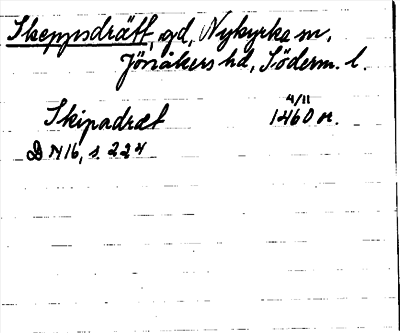 Skeppsdrätt, gd, Nykyrka sn,
Jönåkers hd, Söderm. l.
4/11
Skipadræt 1460 or.
D N16, s. 224